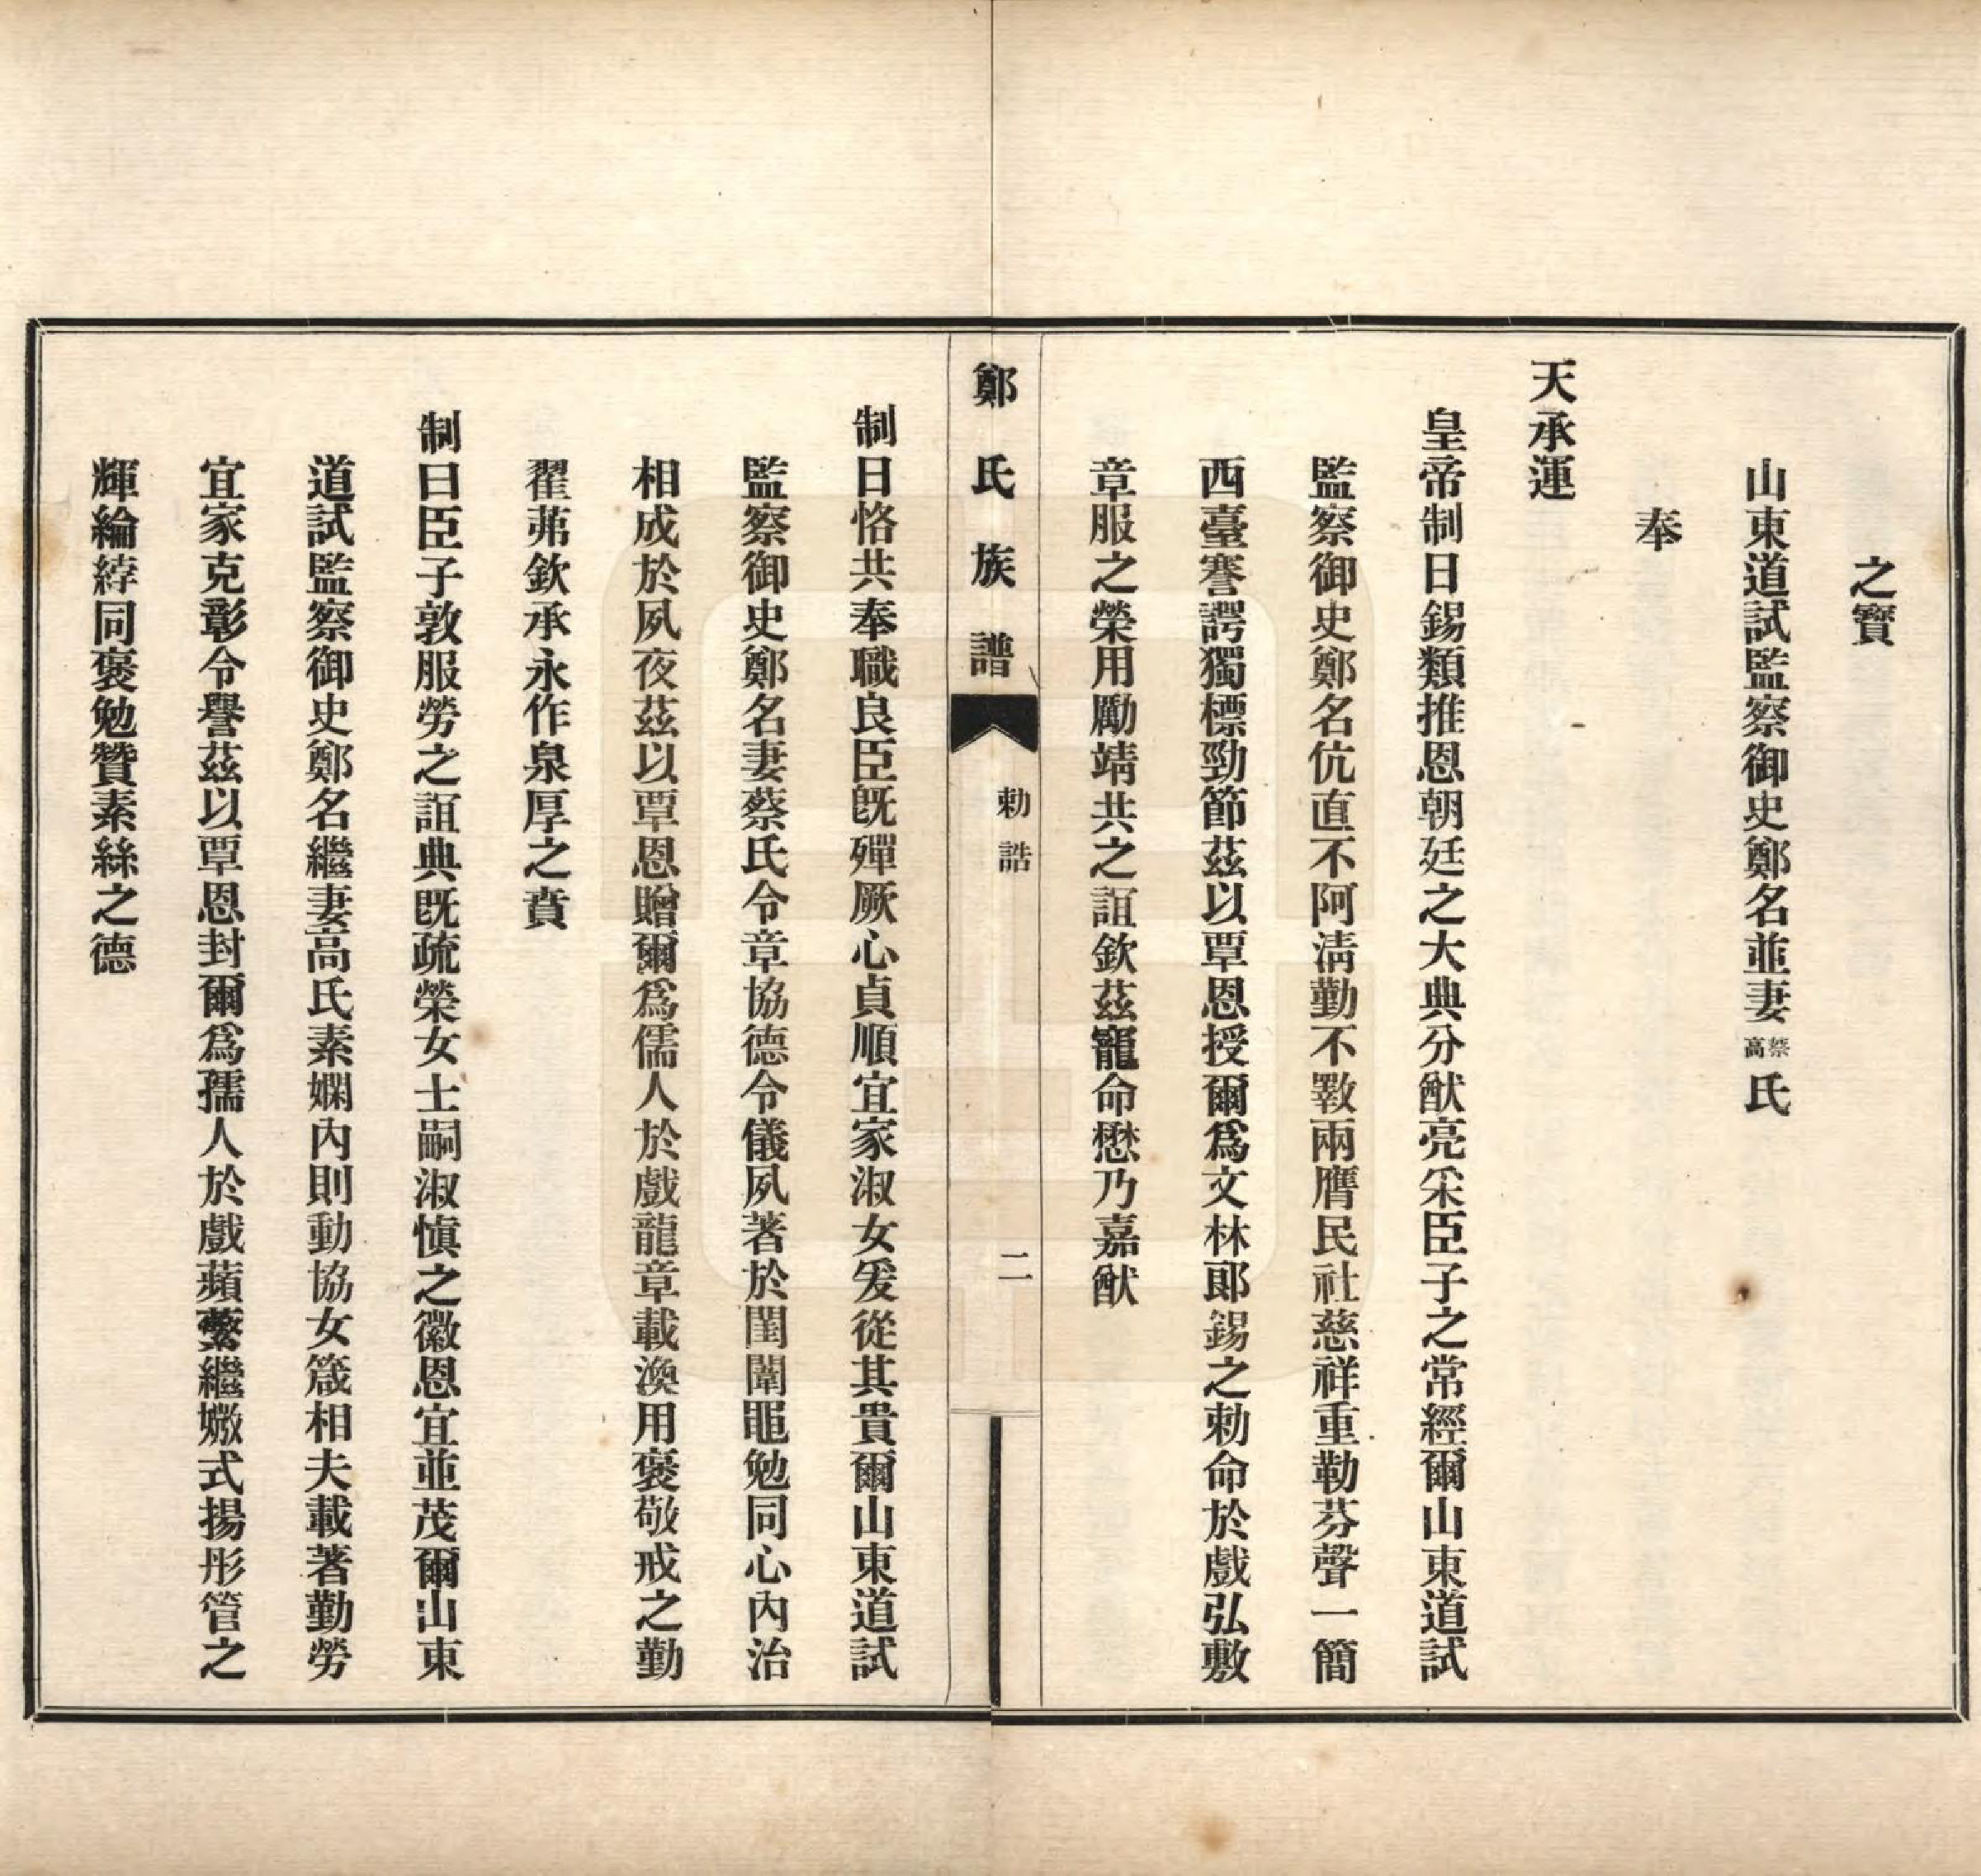 之寶
山東道試監察御史鄭名並妻蔡高氏
奉
天承運
皇帝制曰錫類推恩朝廷之大典分猷亮采臣子之常經爾山東道試
監察御史鄭名伉直不阿淸勤不斁兩膺民社慈祥重勒芬聲一簡
西臺謇諤獨標勁節茲以覃恩授爾爲文林郞錫之勅命於戲弘敷
章服之榮用勵靖共之誼欽茲寵命懋乃嘉猷
鄭氏族譜
勅誥
二
制曰恪共奉職良臣旣殫厥心貞順宜家淑女爰從其貴爾山東道試
監察御史鄭名妻蔡氏令章協德令儀夙著於閨闈黽勉同心內治
相成於夙夜茲以覃恩贈爾爲儒人於戲龍章載渙用褒敬戒之勤
翟茀欽承永作泉厚之賁
制曰臣子敦服勞之誼典旣疏榮女士嗣淑愼之徽恩宜並茂爾山東
道試監察御史鄭名繼妻高氏素嫻內則動協女箴相夫載著勤勞
宜家克彰令譽茲以覃恩封爾爲孺人於戲蘋蘩繼嫩式揚彤管之
輝綸綍同褒勉贊素絲之德